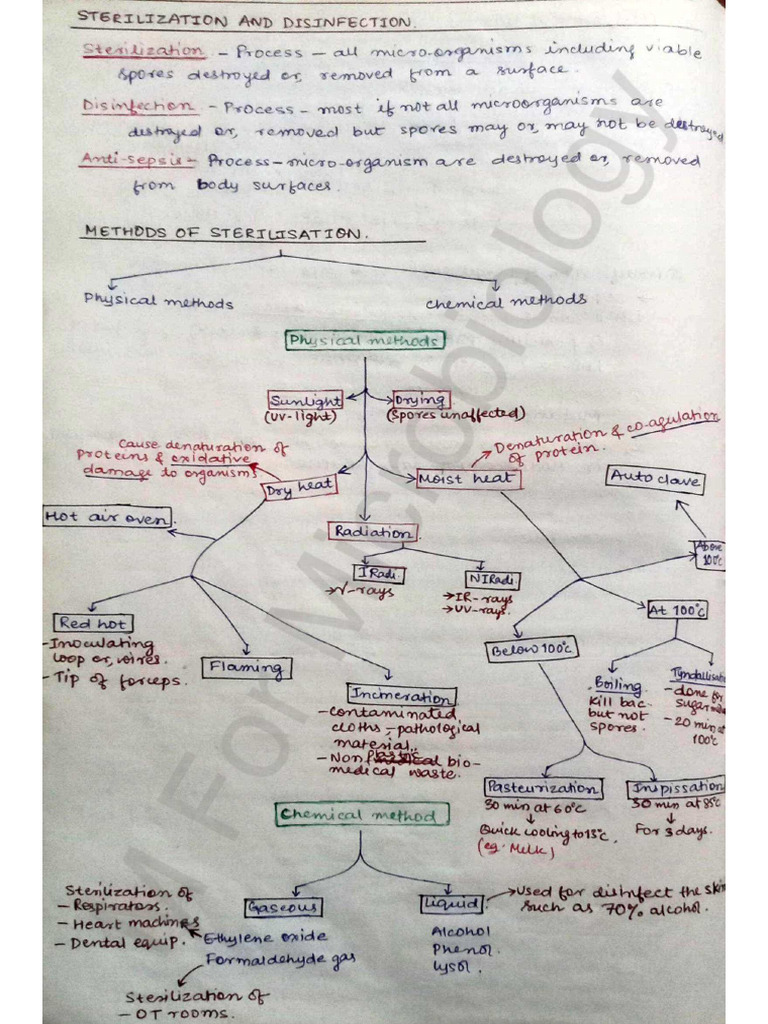 STERILIZATION AND DISINFECTION.
Sterilization - Process - all micro-organisms including viable
spores destroyed or, removed from a surface.
Disinfection - Process - most if not all microorganisms are
destroyed or, removed but spores may or, may not be destroyed
Anti-sepsis - Process - micro-organism are destroyed or, removed
from body surfaces.
METHODS OF STERILISATION.
Physical methods
chemical methods
Physical methods
Sunlight
(UV-light)
Drying
(spores unaffected)
Cause denaturation of
proteins & oxidative
damage to organisms
Dry heat
Moist heat
Denaturation & co-agulation
of protein.
Autoclave
Hot air oven.
Radiation.
IRadi.
→ γ-rays
NIRadi.
→ IR-rays
→ UV-rays.
Above
100°c
At 100°c
Below 100°c
Red hot
- Inoculating
loop or, wires.
- Tip of forceps.
Flaming
Incineration
- contaminated
cloths, - pathological
material.
- Non plastic bio-
medical waste.
Boiling
Kill bac-
but not
spores.
Tyndallisati
- done for
sugar
- 20 min at
100°c
Pasteurization
30 min at 60°c
↓
Quick cooling to 13°c.
(eg. Melk)
Inspissation
30 min at 85°c
↓
For 3 days.
Chemical method
Sterilization of
- Respirators.
- Heart machines
- Dental equip.
Gaseous
Ethylene oxide
Formaldehyde gas
Sterilization of
- OT rooms.
Liquid
Alcohol
Phenol.
Lysol.
→ Used for disinfect the skin
such as 70% alcohol.
M For Microbiology